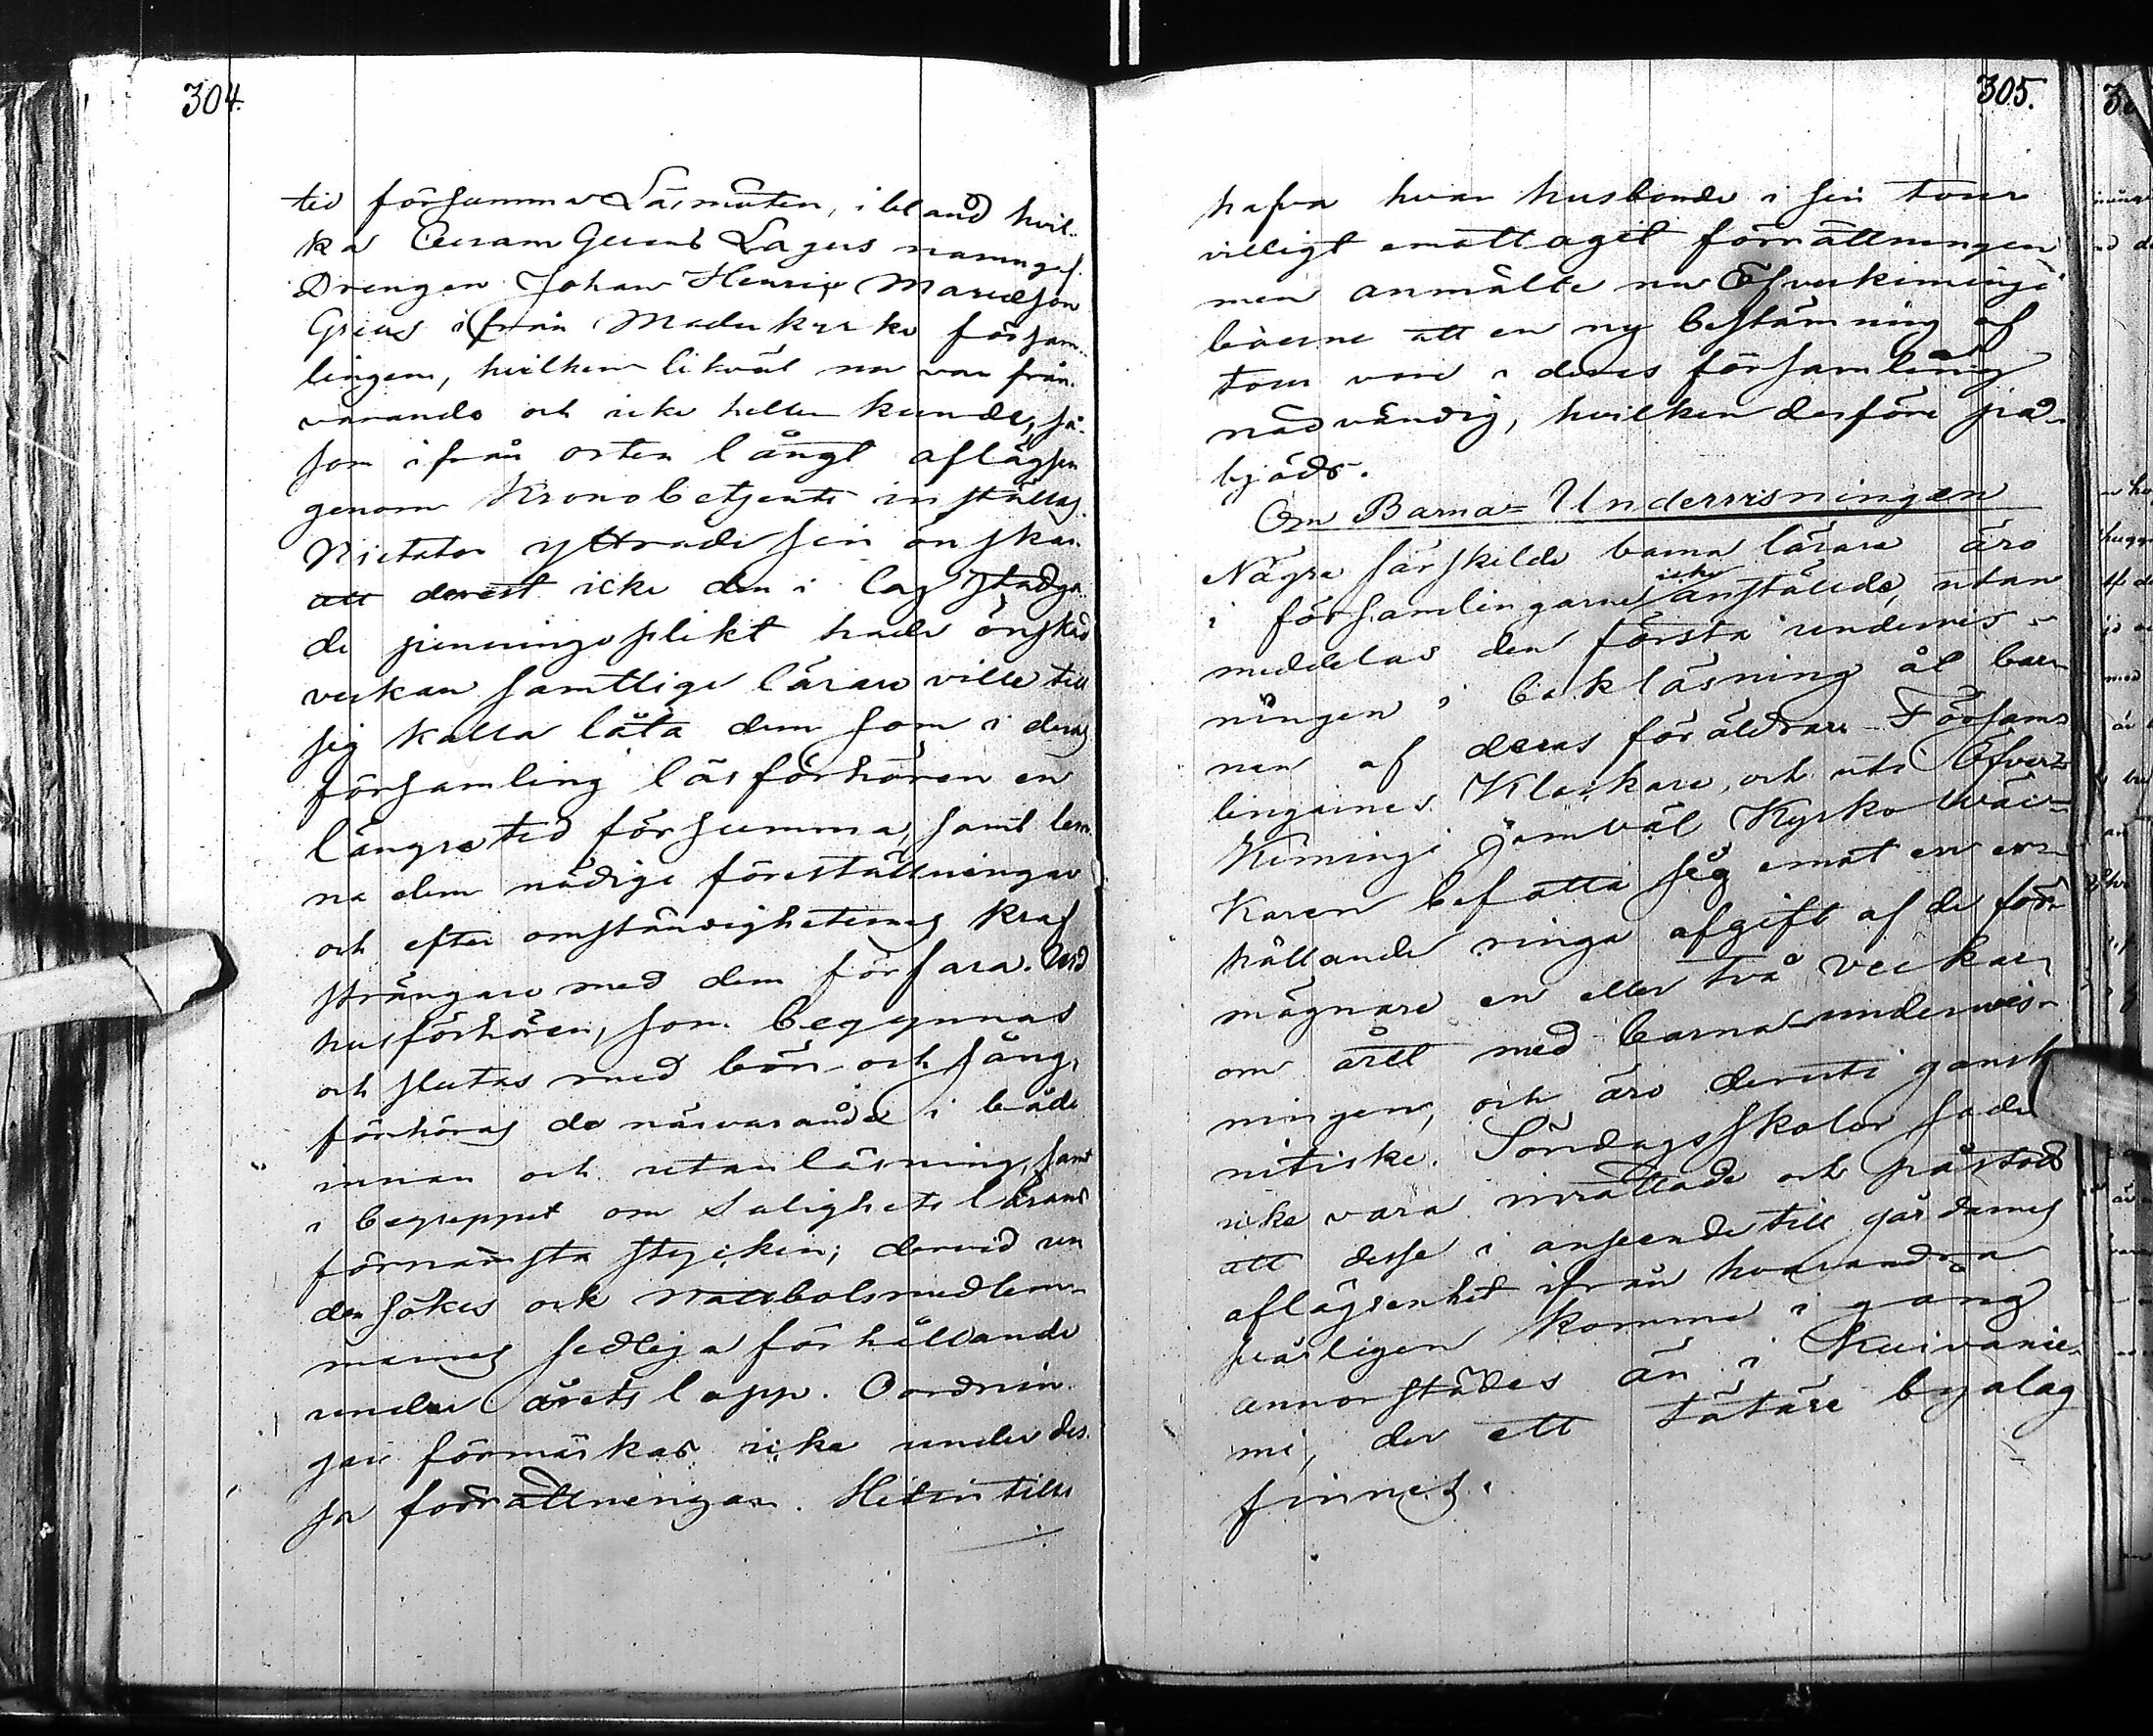 304.
tid försumma Läsmöten, ibland hvil-
ka Curam Gerens Lagus namngaf
Drengen Johan Henric
Grius ifrån Muderkyrko försam-
lingen, hvilken likväl nu var från-
varande och icke heller kunde, så-
som ifrån orten långt aflägsen
genom Kronobetjente inställas.
Visitator yttrade sin önskan
att derest icke den i lag stadga-
de pienningeplikt hade önskad
verkan samtlige lärare ville till
sig kalla låta dem som i deras
församling läsförhören en
längre tid försumma, samt lem-
na dem nödige föreställningar
och efter omständigheternes kraf
strängare med dem förfara. Vid
husförhören, som begynnas
och slutas med bön och sång,
förhöras de närvarande i både
innan och utanläsning, samt
i begreppet om Salighets lärans
förnämsta stycken; dervid un
dersökes ock matbolsmedlem-
marnes sedliga förhållande
under årets lopp. Oordnin-
gar förmärkas icke under des-
sa förrättningar. Hitintills
305.
hafva hvar husbonde i sin tour
villigt emottagit förrättningen
men anmälte nu Öfverkimingi
boerne att en ny bestämning af
tour vore i deras församling
nödvändig, hvilken derföre på-
bjöds.
Om Barna-Undervisningen
Någre särskilde barna lärare äro
i församlingarne icke anstälde, utan
meddelas den första undervis-
ningen i bokläsning åt bar-
nen af deras föräldrar. Försam-
lingarnes Klockare, och uti Öfver-
Kimingi jemväl Kyrkowäc-
karen befatta sig emot en er-
hållande ringa afgift af de för-
mögnare en eller två veckar
om året med barna undervis-
ningen, och äro deruti ganska
nitiske. Söndagsskolor sades
icke vara inrättade och påstods
att desse i anseende till gårdarnes
aflägsenhet ifrån hvarandra
svårligen komma i gang
annorstädes än i Kuivanie-
mi, der ett tätare byalag
finnes.